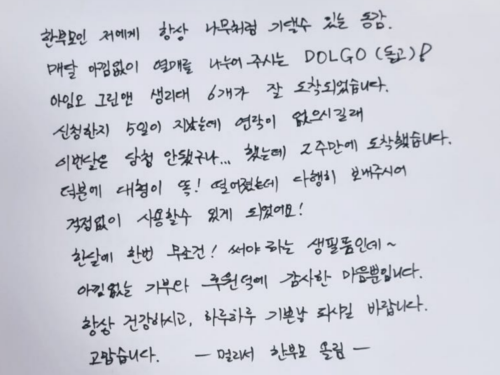 한부모인 저에게 항상 나무처럼 기댈수 있는 동감.
매달 아낌없이 열매를 나누어 주시는 DOLGO (돌고)!
아임오 그린앤 생리대 6개가 잘 도착되었습니다.
신청한지 5일이 지났는데 연락이 없으시길래
이번달은 당첨 안됐구나... 했는데 2주만에 도착했습니다.
덕분에 대형이 똑! 떨어졌는데 다행히 보내주시어
걱정없이 사용할수 있게 되었어요!
한달에 한번 무조건! 써야 하는 생필품인데~
아낌없는 기부와 후원덕에 감사한 마음뿐입니다.
항상 건강하시고, 하루하루 기쁜날 되시길 바랍니다.
고맙습니다. - 멀리서 한부모 올림 -